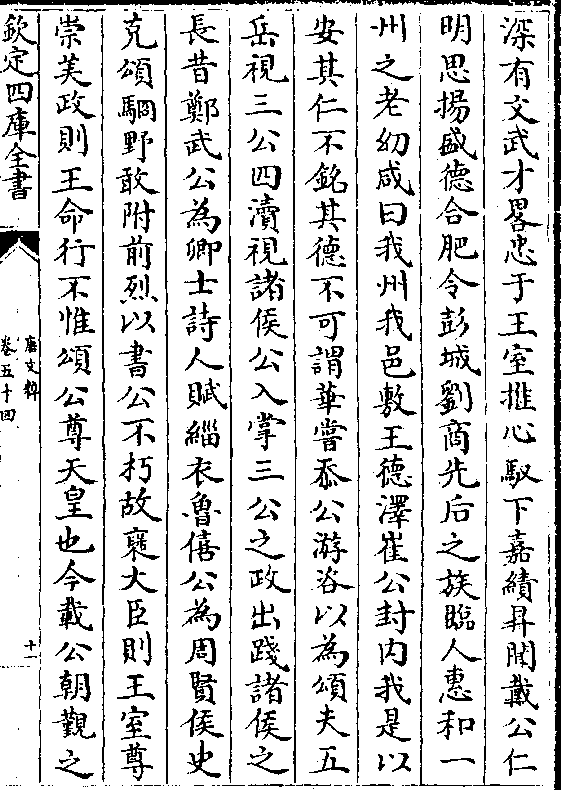 深有文武才畧忠于王室推心馭下嘉績昇聞載公仁
明思揚盛德合肥令彭城劉商先后之族臨人惠和一
州之老幼咸曰我州我邑敷王德澤崔公封内我是以
安其仁不銘其德不可謂華嘗忝公游咨以為頌夫五
岳視三公四瀆視諸侯公入掌三公之政出踐諸侯之
長昔鄭武公為卿士詩人賦緇衣魯僖公為周賢侯史
克頌駉野敢附前烈以書公不朽故襃大臣則王室尊
崇美政則王命行不惟頌公尊天皇也今載公朝覲之
欽定四庫全書
唐文粹
卷五十四
十一